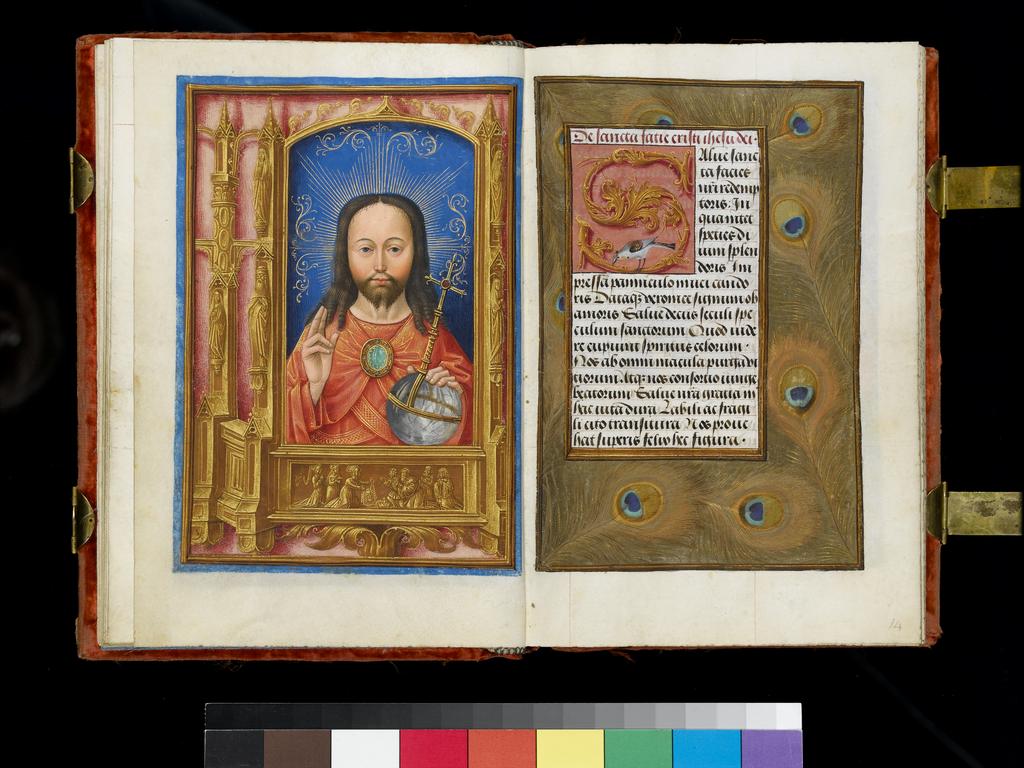 De sancta facie cristi ihesu dei·
SAlue sanc
ta facies
nri redemp
toris: In
qua nitet
species di
uini splen
doris Im
pressa panniculo niuei cando
ris Dataqz veronice signum ob
amoris Salue decus seculi spe
culum sanctorum Quod uide
re cupiunt spiritus celorum·
Nos ab omni macula purga vi
ciorum Atqz nos consorcio iunge
beatorum Salue nra gloria in
hac uita dura Labili ac fragi
li cito transitura Nos proue
hat superis felix hec figura·
14